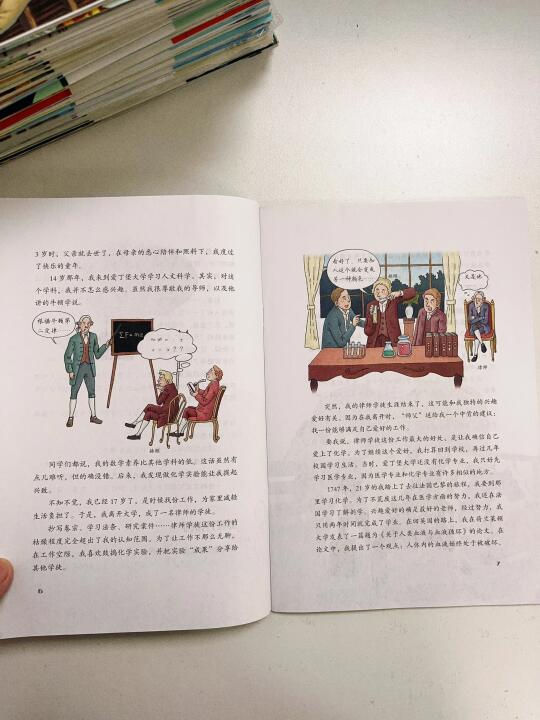 3 岁时，父亲就去世了，在母亲的悉心陪伴和照料下，我度过
了快乐的童年。
14 岁那年，我来到爱丁堡大学学习人文科学。其实，对这
个学科，我并不怎么感兴趣，虽然我很尊敬我的导师，以及他
讲的牛顿学说。
根据牛顿第
二定律…
ΣF=ma
赫顿
同学们都说，我的数学青的比其他学科的低。这话虽然有
点儿难听，但的确没错。后来，我发现做化学实验能让我提起
兴致。
不知不觉，我已经 17 岁了，是时候找份工作，为家里减轻
生活负担了。于是，我离开大学，成了一名律师的学徒。
抄写卷宗、学习法务、研究案件……律师学徒这份工作的
枯燥程度完全超出了我的认知范围。为了让工作不那么无聊，
在工作空隙，我喜欢鼓捣化学实验，并把实验“成果”分享给
其他学徒。
6
看好了，只要加
入这个就会变成
另一种颜色…
赫顿
又是他…
律师
突然，我的律师学徒生涯结束了，这可能和我独特的兴趣
爱好有关。因为在我离开时，“师父”送给我一个中肯的建议：
找一份能够满足自己爱好的工作。
要我说，律师学徒这份工作最大的好处，是让我确信自己
爱上了化学。为了继续这个爱好，我打算回到学校，再过几年
校园学习生活。当时，爱丁堡大学还没有化学专业，我只好先
学习医学专业，因为医学专业和化学专业有许多相似的地方。
1747 年，21 岁的我踏上了去往法国巴黎的旅程，要到那
里学习化学。为了不荒废这几年在医学方面的努力，我还在法
国学习了解剖学。兴趣爱好的确是最好的老师，经过努力，我
只用两年时间就完成了学业。在回英国的路上，我在荷兰莱顿
大学发表了一篇题为《关于人类血液与血液循环》的论文。在
论文中，我提出了一个观点：人体内的血液始终处于被破坏、
7